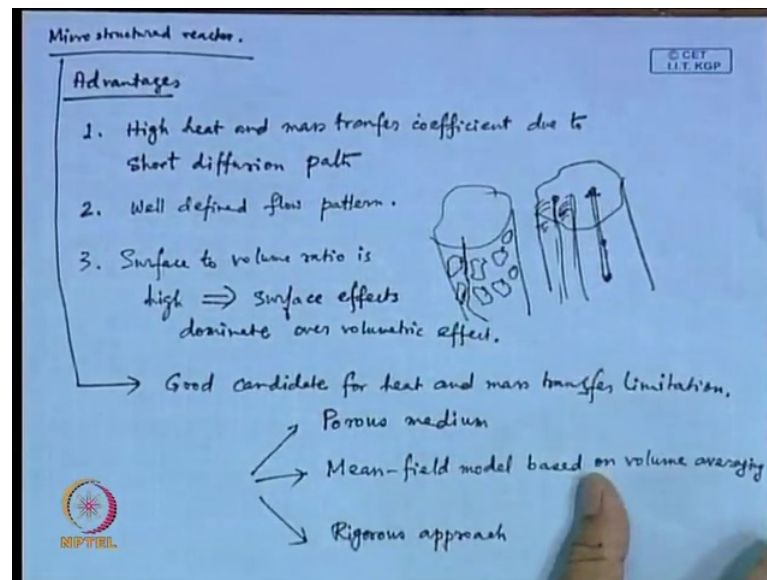 Micro structured reactor.
© CET
I.I.T. KGP
Advantages
1. High heat and mass tranfer coefficient due to
short diffusion path
2. Well defined flow pattern.
3. Surface to volume ratio is
high ⇒ surface effects
dominate over volumetric effect.
Good candidate for heat and mass transfer limitation.
Porous medium
Mean-field model based on volume averaging
Rigorous approach
NPTEL